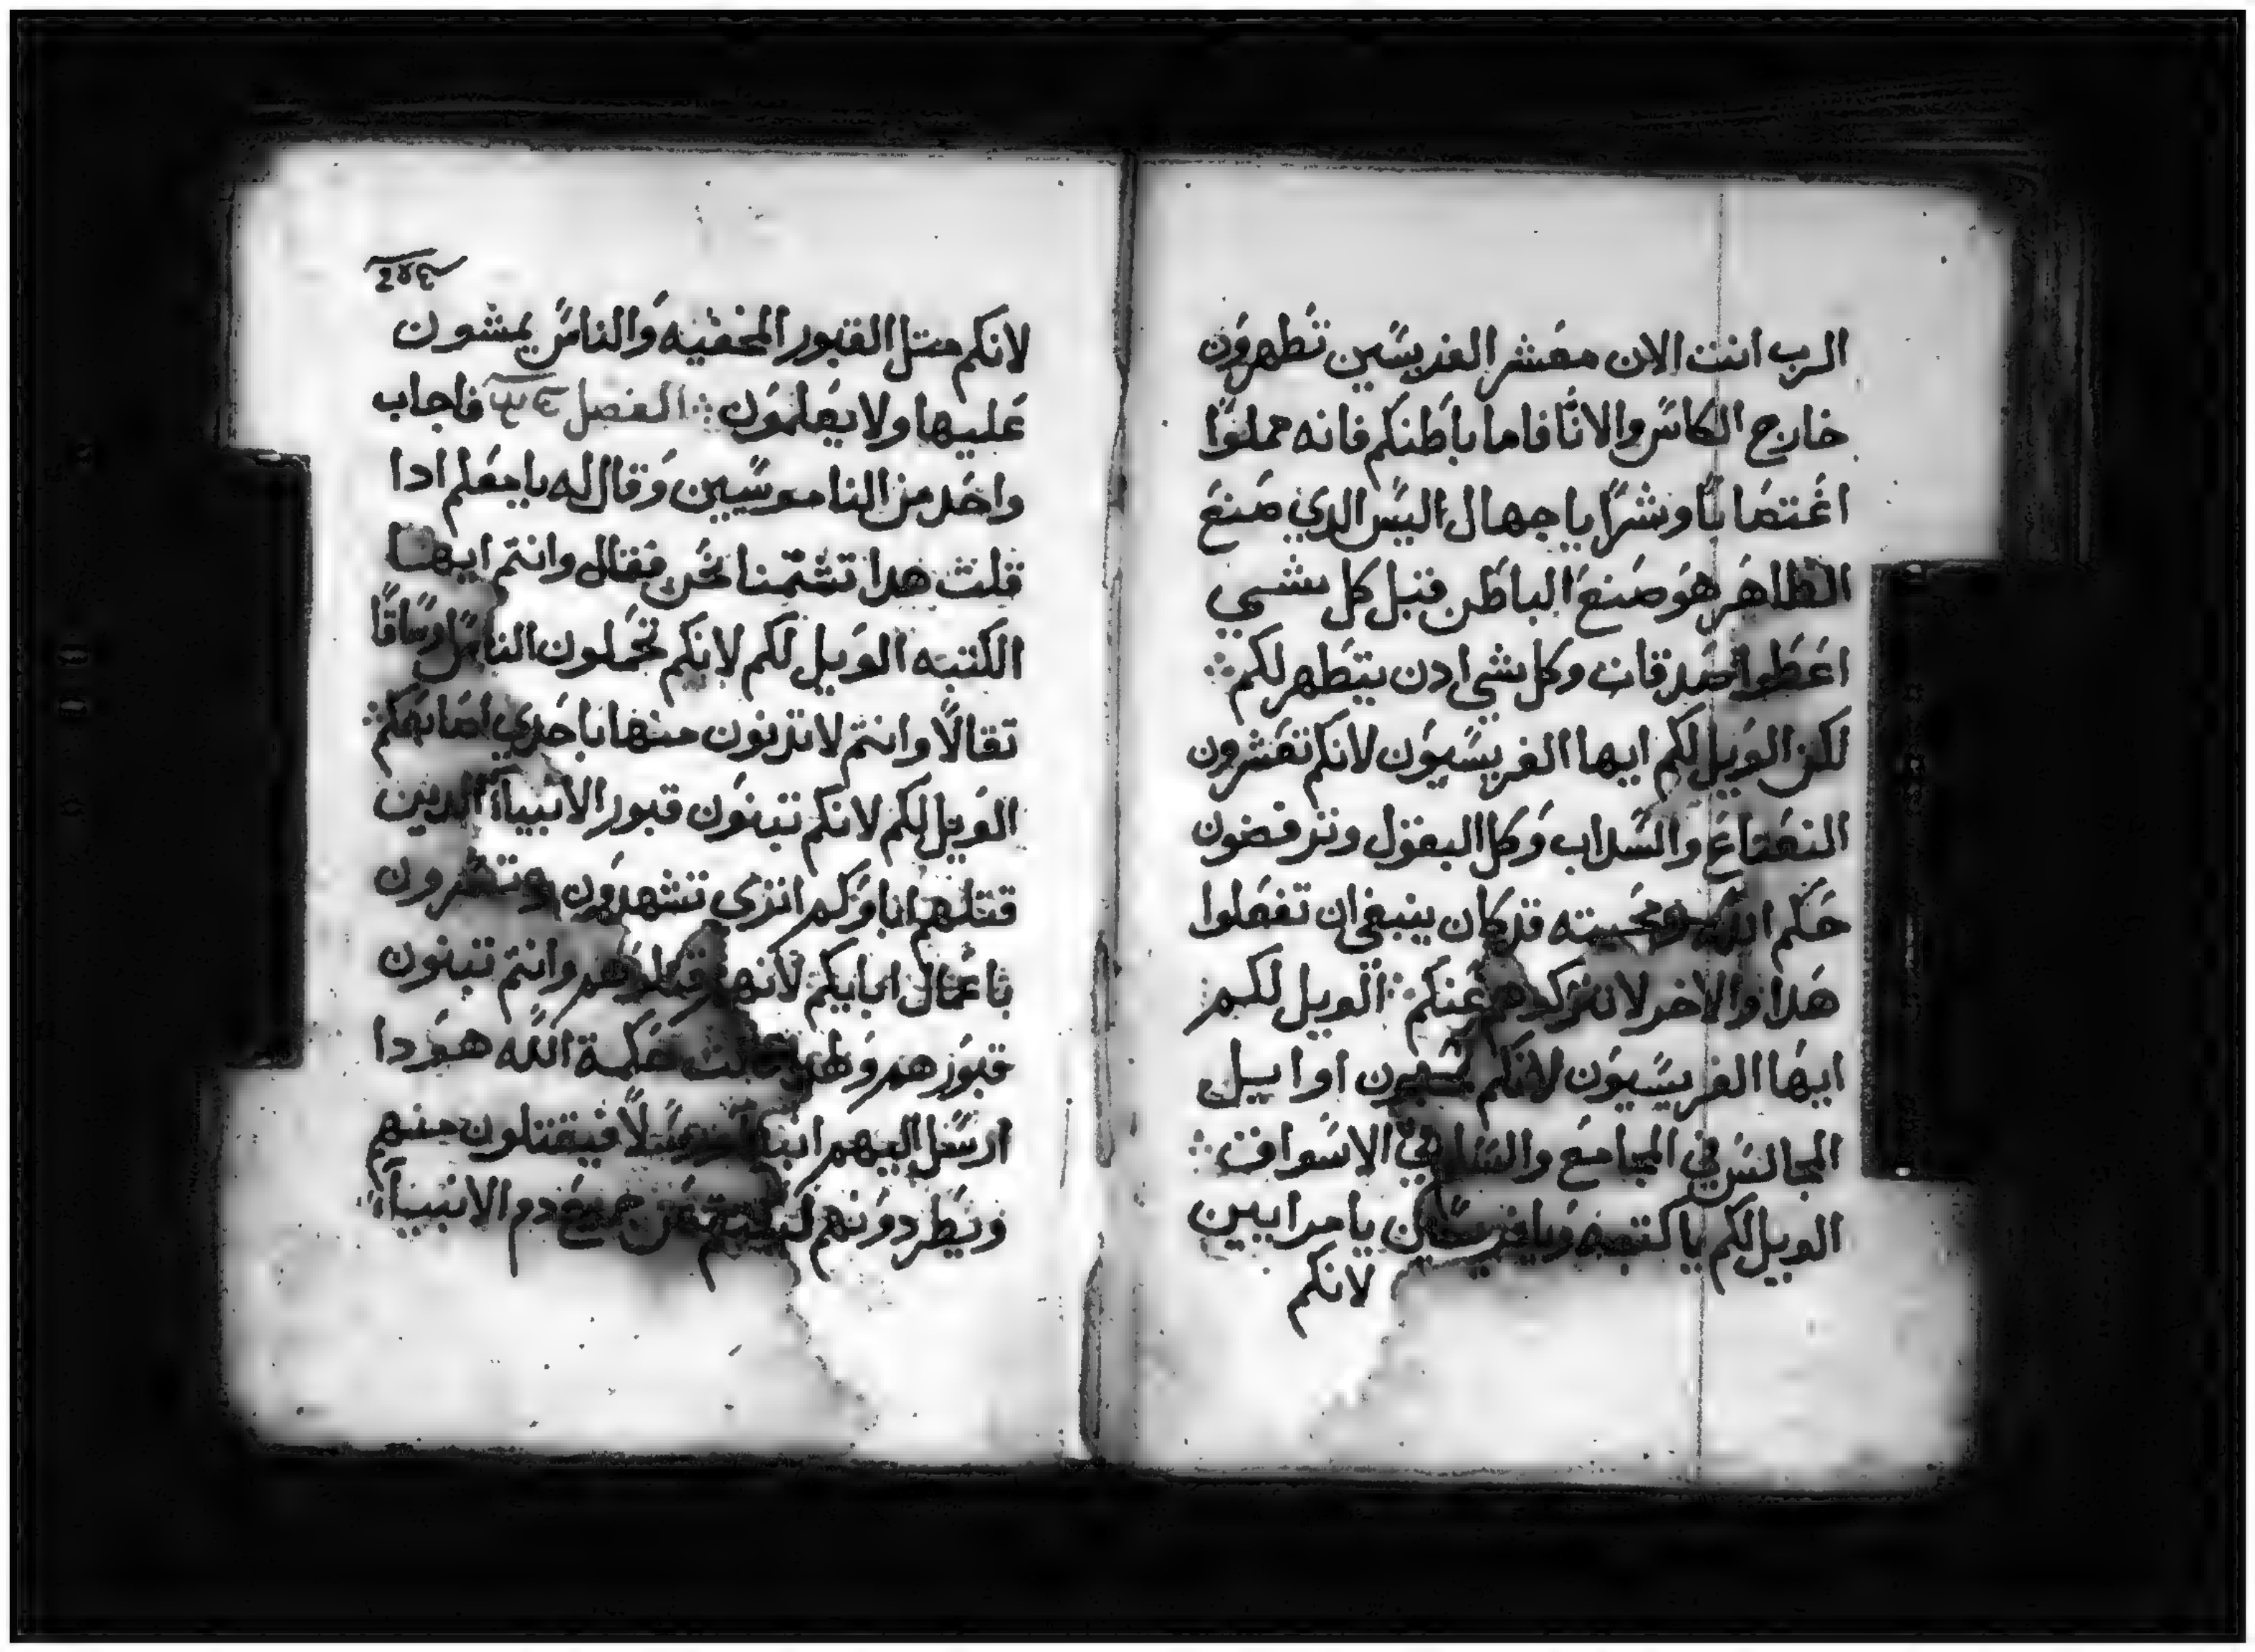 الرب انتت الان معشر الفريسين تطهرون
خارج الكاس والاناّ فاما باطنكم فانه مملوّا
اغتصاباً وشراً يا جهال اليس الدي صنع
الظاهر هو صنع الباطن قبل كل شي
اعطوا صدقات وكل شي ادن يتطهر لكم
لكن الويل لكم ايها الفريسيون لانكم تعشرون
النعناع والسداب وكل البقول وترفضون
حكم الله ومحبته قد كان ينبغي ان تفعلوا
هدا والاخر لا تتركوه عنكم الويل لكم
ايها الفريسيون لانكم تحبون اوايل
المجالس في المجامع والسلام في الاسواق
الويل لكم يا كتبه ويا فريسيين يا مرايين
لانكم
لانكم متل القبور المخفيه والناس يمشون
عليها ولا يعلمون الفصل فاجاب
واحد من الناموسيين وقال له يا معلم ادا
قلت هدا تشتمنا نحن فقال وانتم ايها
الكتبه الويل لكم لانكم تحملون الناس اوساقاً
تقالاً وانتم لا تدنون منها باحدي اصابعكم
الويل لكم لانكم تبنون قبور الانبياّ الدين
قتلهم اباوكم انتري تشهدون وتسرون
باعمال ابايكم لانهم قتلوهم وانتم تبنون
قبورهم ولهدا قالت حكمة الله هودا
ارسل اليهم انبيا ورسلاً فيقتلون منهم
ويطردونهم لينتقم عن جميع دم الانبياّ